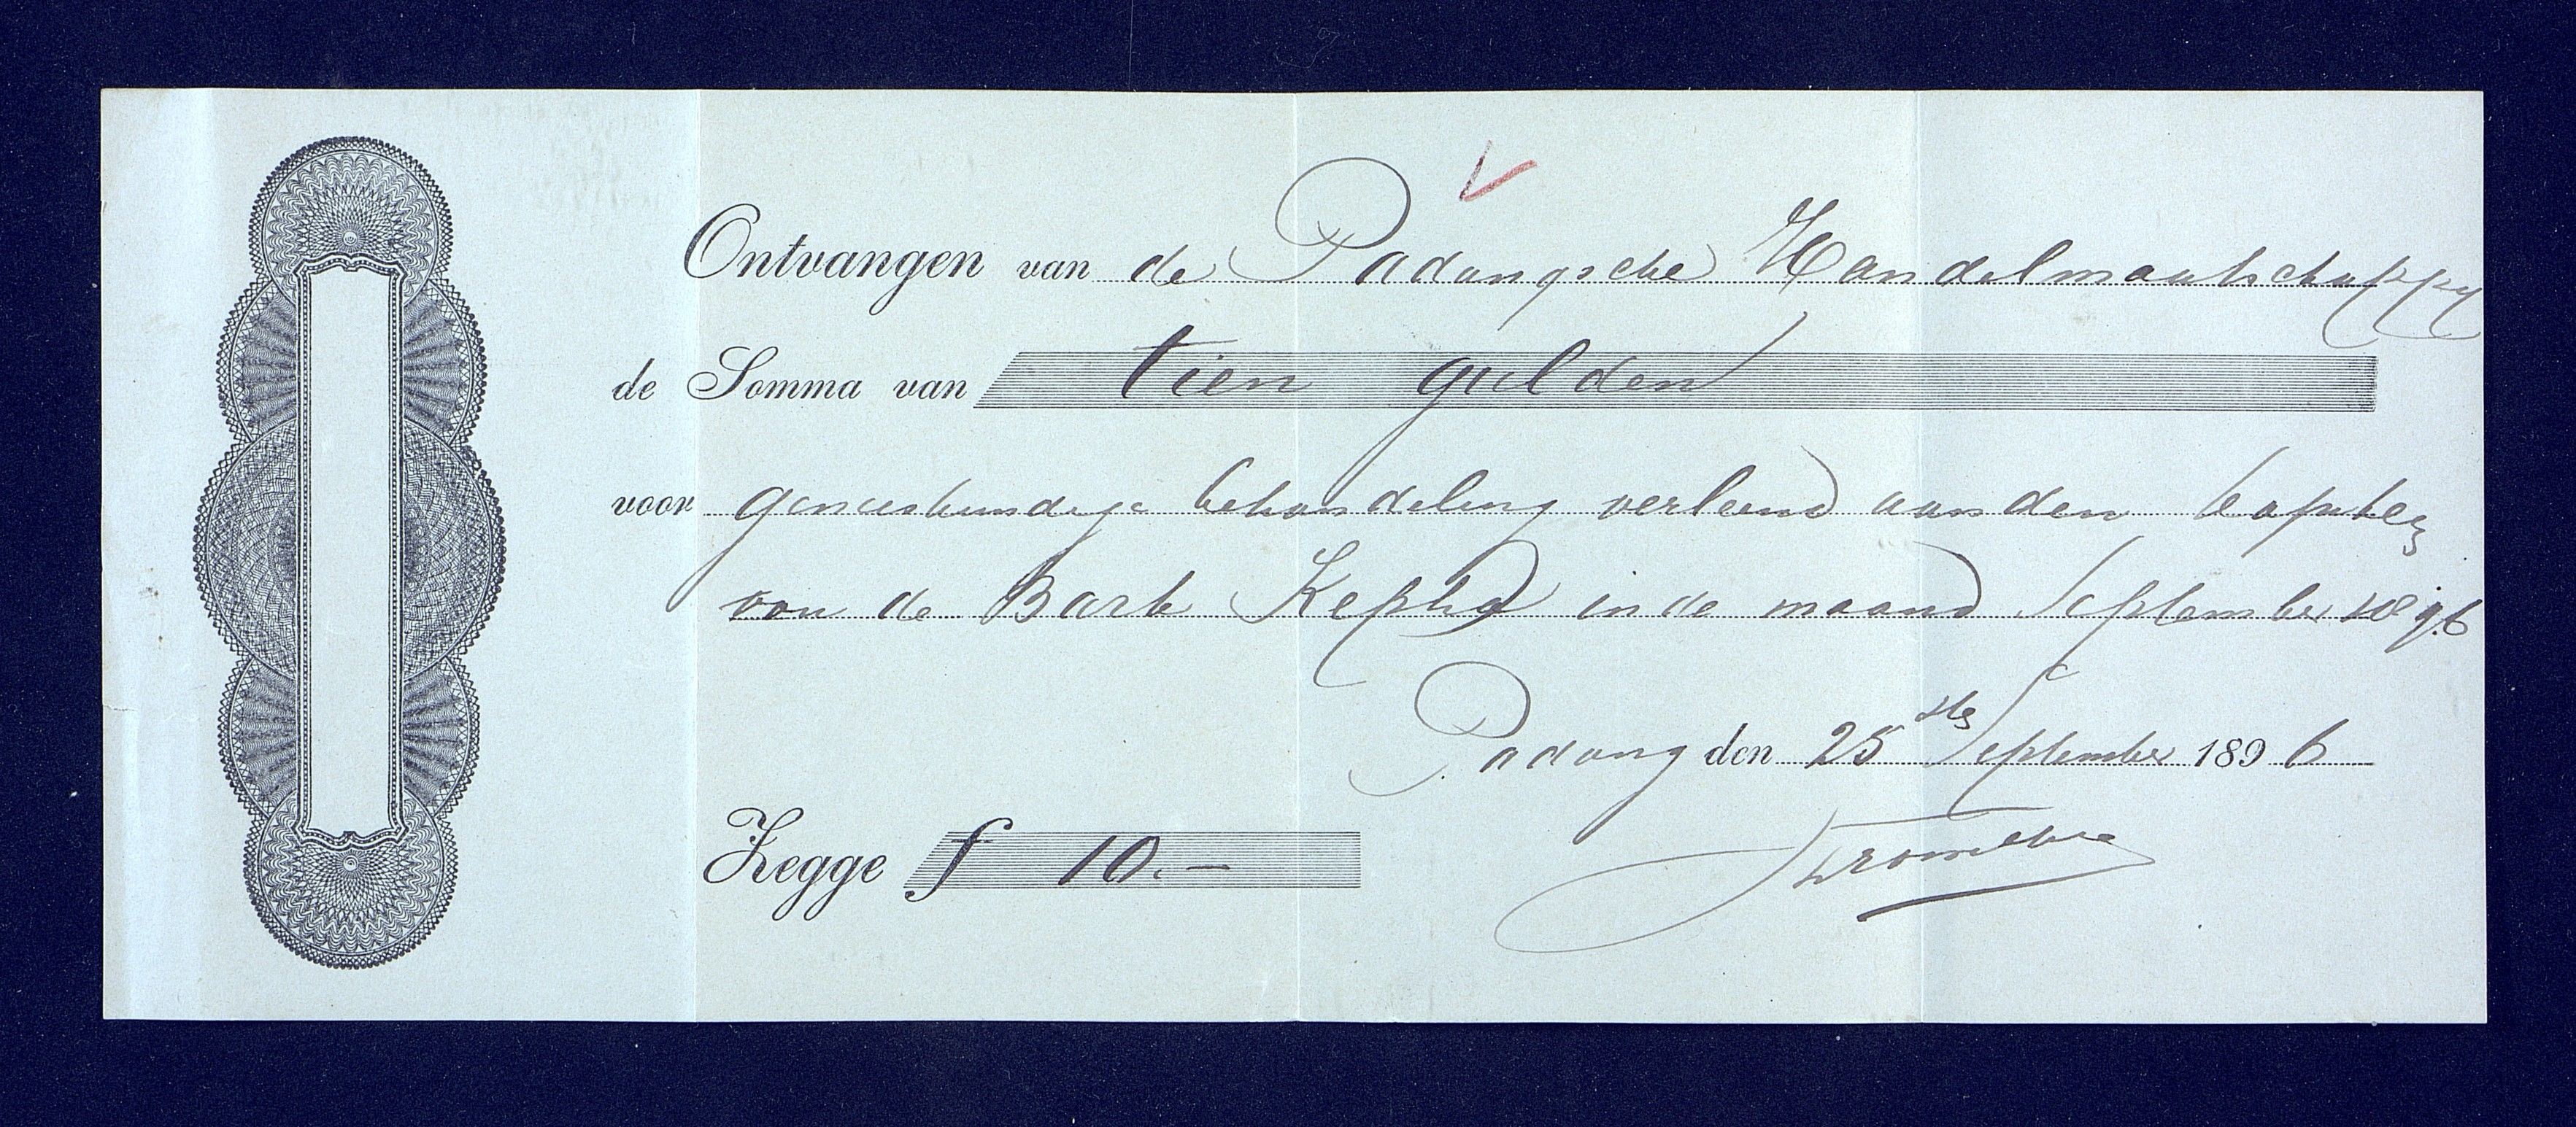 Ontvangen van de Padangsche Handelmaatschappy
de Somma van tien gulden
voor geneeskundige behandeling verleend aan den Captein
van de Bark Kepha in de maand September 1896
Padang den 25 ste September 1896
Zegge f 10.-